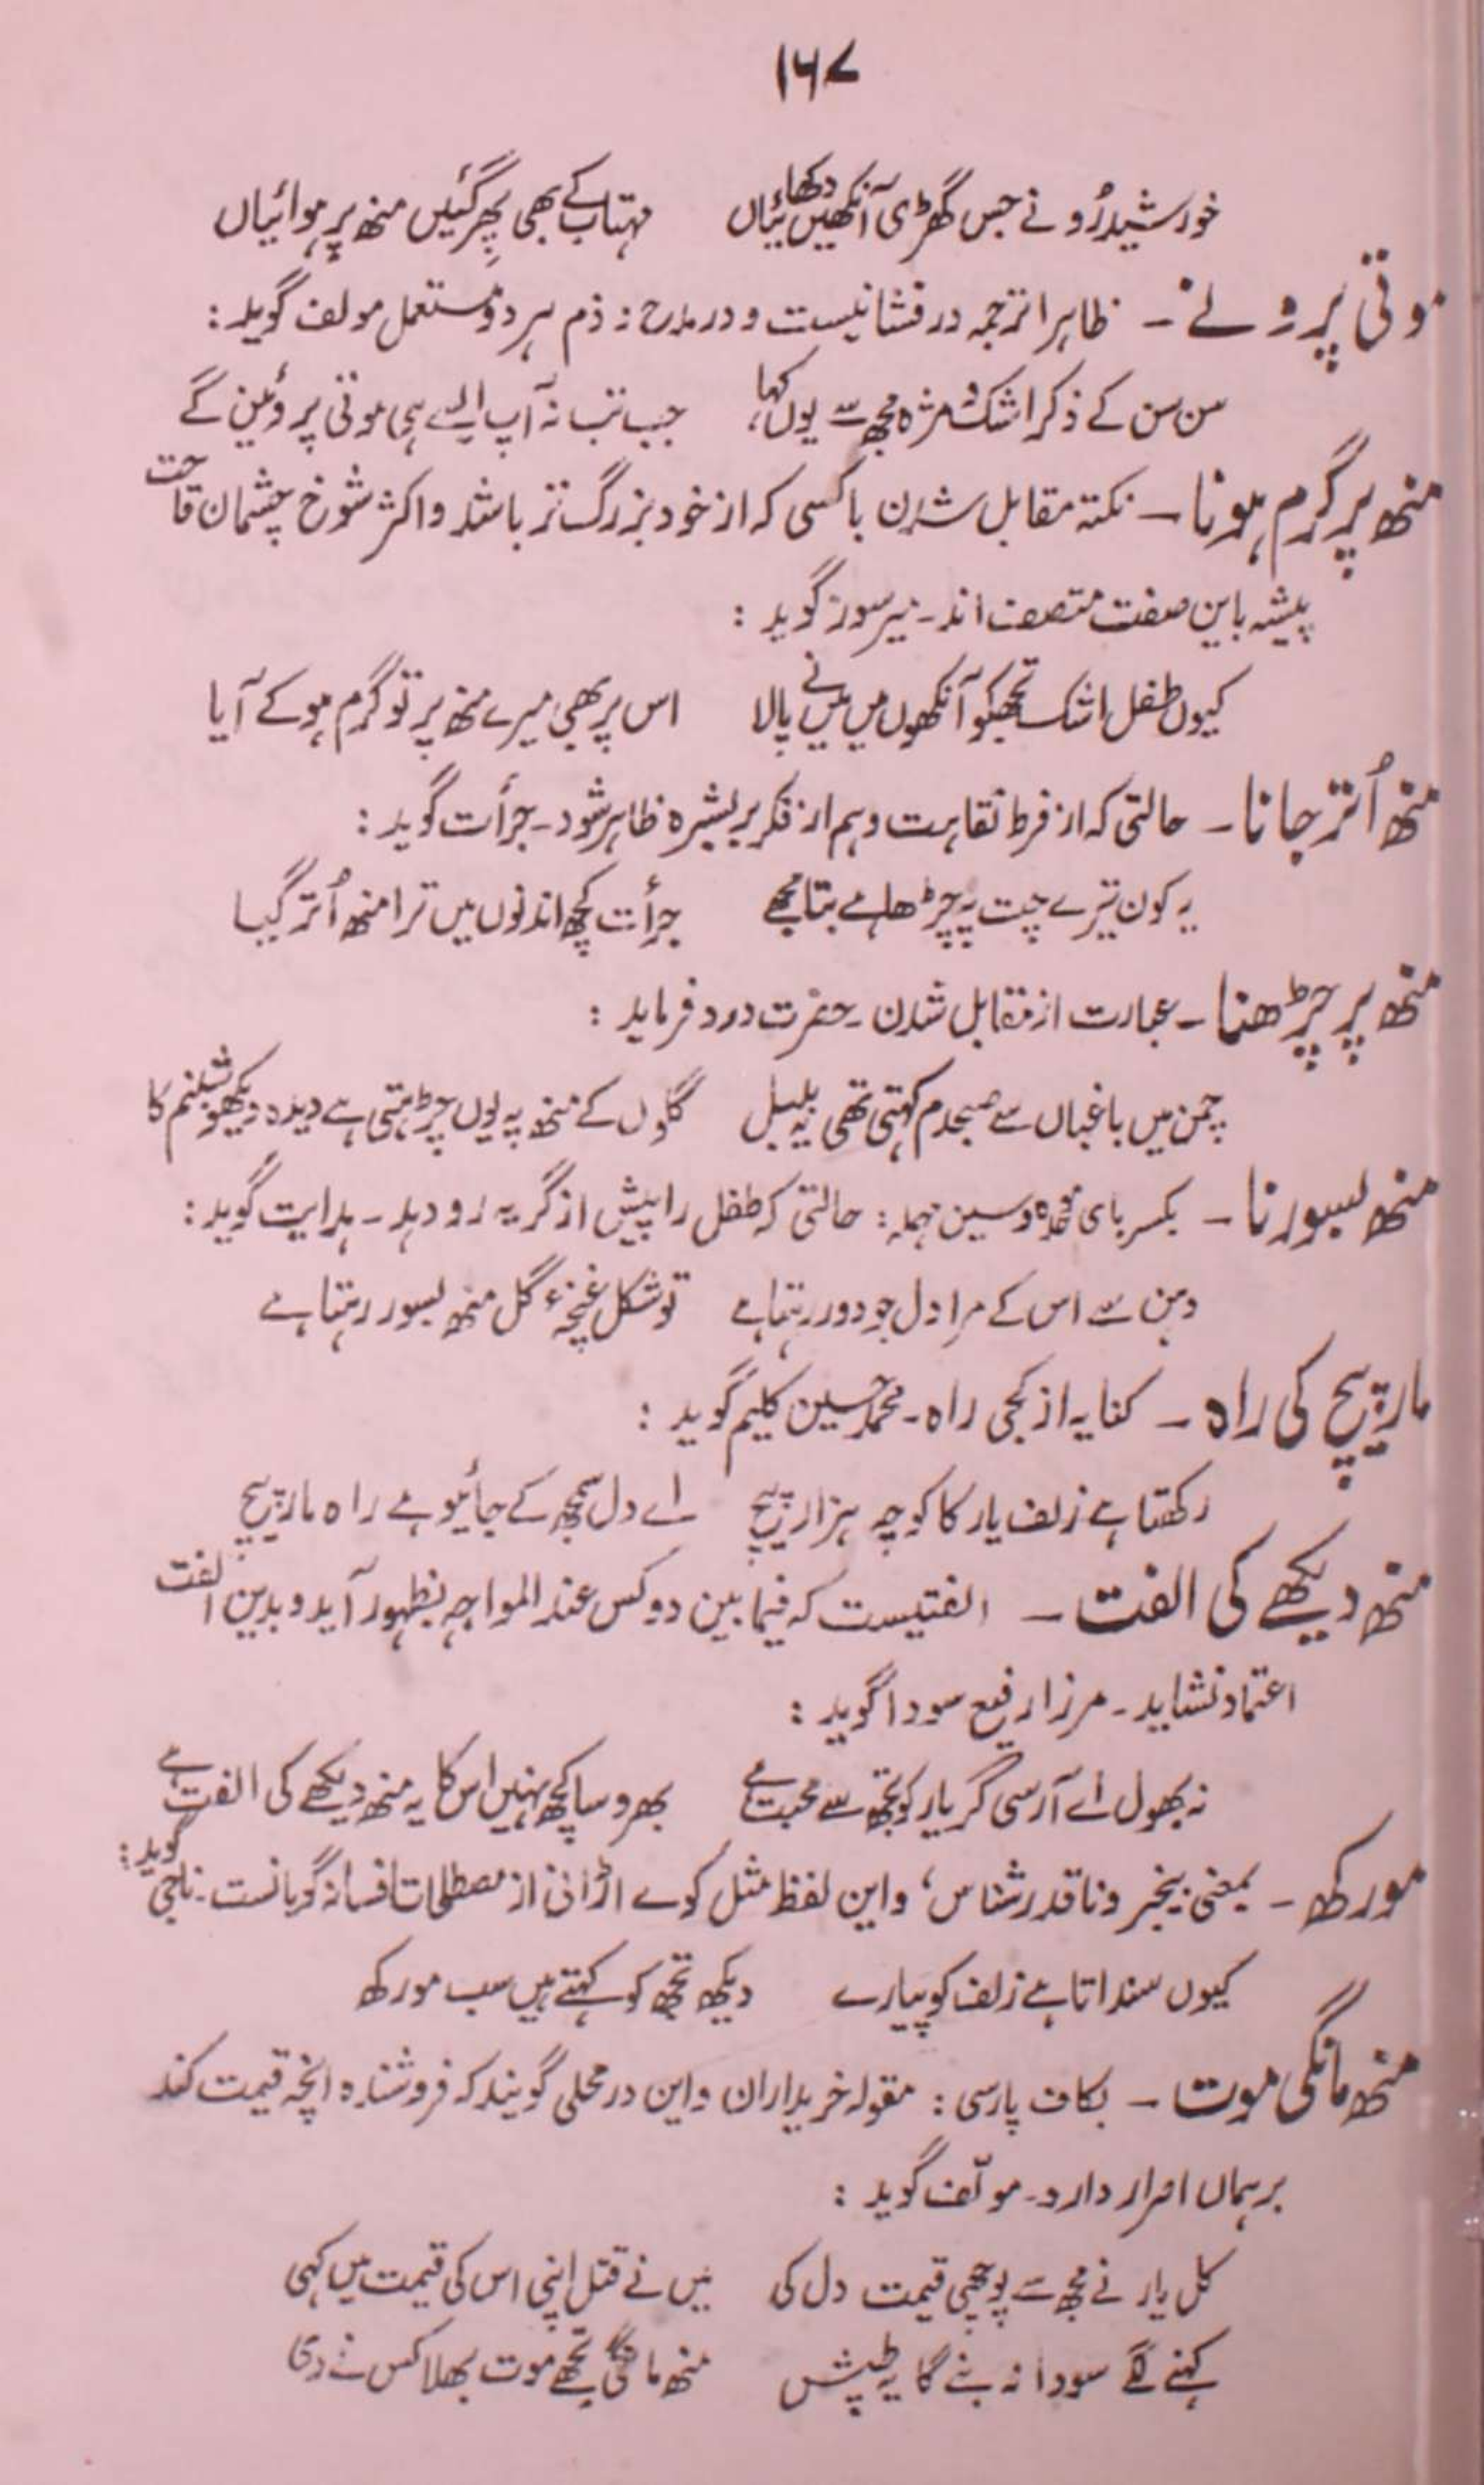 ۱۶۷
خورشید رُو نے جس گھڑی آنکھیں دکھائیاں مہتاب کے بھی پِھر گئیں منھ پر ہوائیاں
موتی پرونے ـ ظاہرا ترجمہ در فشانیست و در مدح و ذم ہر دو مستعمل مولف گوید :
سن سن کے ذکر اشک و مژہ مجھ سے یوں کہا، جب تب نہ آپ ایسے ہی موتی پروئین گے
منھ پر گرم ہونا ـ نکتہ مقابل شدن با کسی کہ از خود بزرگ تر باشد و اکثر شوخ چشمان قباحت
پیشہ باین صفت متصف اند ـ میر سوز گوید :
کیوں طفل اشک تجھکو آنکھوں میں میں نے پالا اس پر بھی میرے منھ پر تو گرم ہو کے آیا
منھ اُتر جانا ـ حالتی کہ از فرط نقاہت و ہم از فکر بر بشیرہ ظاہر شود ـ جرأت گوید :
یہ کون تیرے چت پہ چڑھا ہے بتا مجھے جرأت کچھ اندنوں میں ترا منھ اُتر گیا
منھ پر چڑھنا ـ عبارت از مقابل شدن ـ حضرت درد فرماید :
چمن میں باغباں سے صبحدم کہتی تھی یہ بلبل گلوں کے منھ پہ یوں چڑہتی ہے دیدہ دیکھو شبنم کا
منھ بسورنا ـ بکسر بای موحدہ و سین مہملہ : حالتی کہ طفل را پیش از گریہ رو دہد ـ ہدایت گوید :
دہن سے اس کے مرا دل جو دور رہتا ہے تو شکل غنچۂ گل منھ بسور رہتا ہے
مار پیچ کی راہ ـ کنایہ از کجی راہ ـ محمد حسین کلیم گوید :
رکھتا ہے زلف یار کا کوچہ ہزار پیچ اے دل سمجھ کے جائیو ہے راہ مار پیچ
منھ دیکھے کی الفت ـ الفتیست کہ فیما بین دو کس عند المواجہ بظہور آید و بدین الفت
اعتماد نشاید ـ مرزا رفیع سودا گوید :
نہ بھول اے آرسی گر یار کو تجھ سے محبت ہے بھروسا کچھ نہیں اس کا یہ منھ دیکھے کی الفت ہے
مورکھ ـ بمعنی بیخبر و ناقدر شناس، و این لفظ مثل کوے اڑانی از مصطلحات افسانہ گویانست ـ ناجی گوید :
کیوں سنداتا ہے زلف کو پیارے دیکھ تجھ کو کہتے ہیں سب مورکھ
منھ مانگی موت ـ بکاف پارسی : مقولہ خریداران و این در محلی گویند کہ فروشندہ انچہ قیمت کند
بر ہماں اصرار دارد ـ مولّف گوید :
کل یار نے مجھ سے پوچھی قیمت دل کی میں نے قتل اپنی اس کی قیمت میں کہی
کہنے لگے سودا نہ بنے گا یہ طپش منھ مانگی تجھے موت بھلا کس نے دی